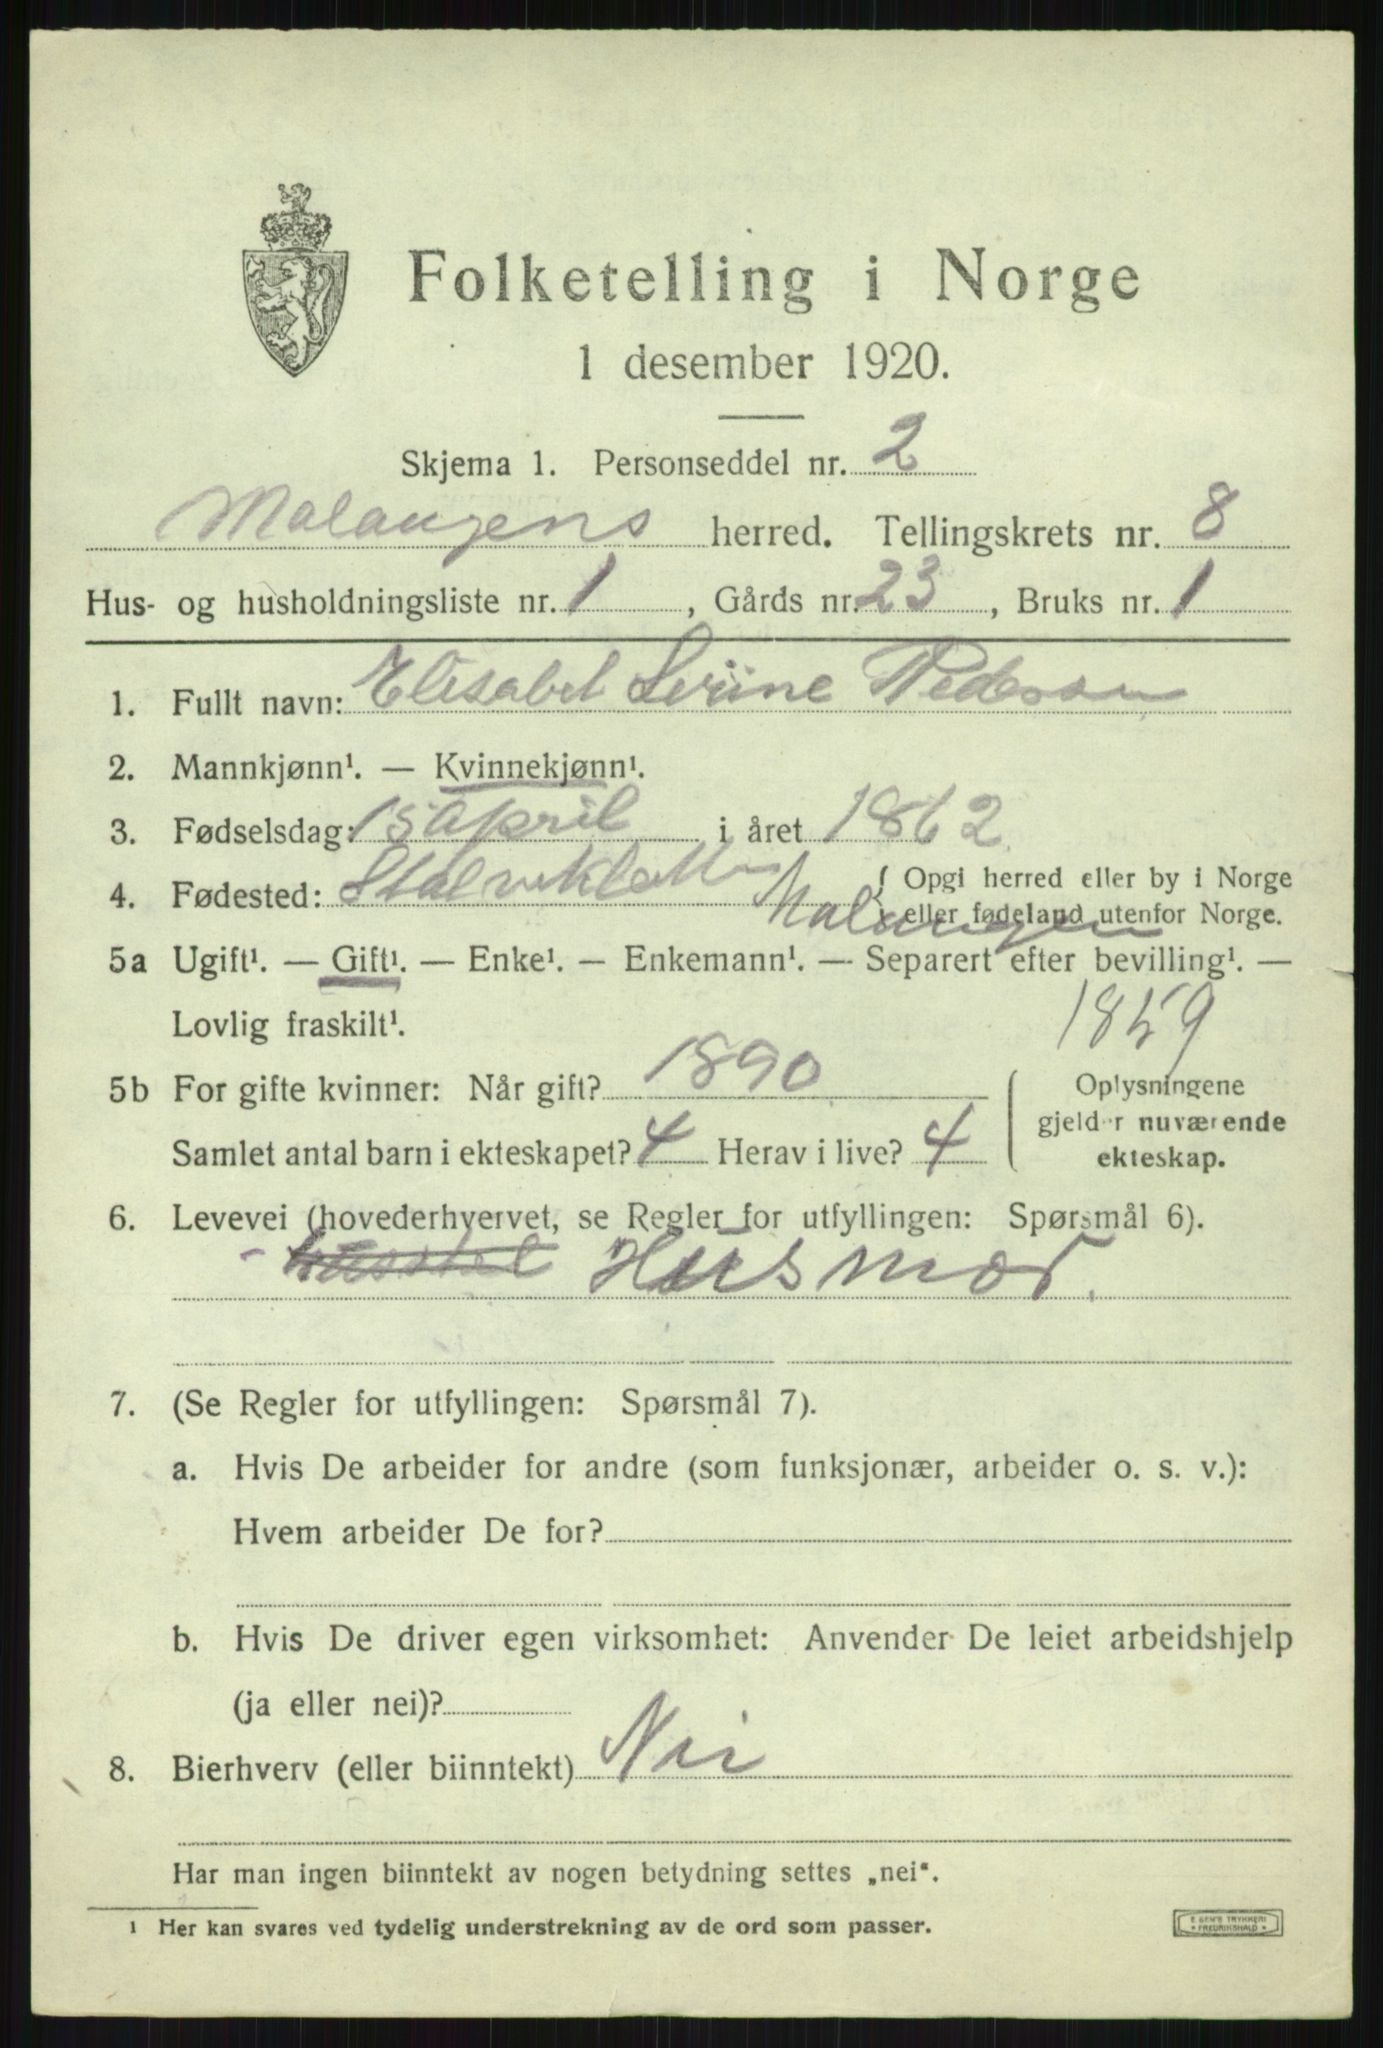 Folketelling i Norge
1 desember 1920.
Skjema 1. Personseddel nr. 2
Malangens herred. Tellingskrets nr. 8
Hus- og husholdningsliste nr. 1, Gårds nr. 23, Bruks nr. 1
1. Fullt navn: Elisabet Pedersen
2. Mannkjønn¹. — Kvinnekjønn¹.
3. Fødselsdag: 15 april i året 1862
4. Fødested: Malangen { Opgi herred eller by i Norge
eller fødeland utenfor Norge.
5a Ugift¹. — Gift¹. — Enke¹. — Enkemann¹. — Separert efter bevilling¹. —
Lovlig fraskilt¹. 1859
5b For gifte kvinner: Når gift? 1890 Oplysningene
gjelder nuværende
Samlet antal barn i ekteskapet? 4 Herav i live? 4 ekteskap.
6. Levevei (hovederhvervet, se Regler for utfyllingen: Spørsmål 6).
- husstel Husmor.
7. (Se Regler for utfyllingen: Spørsmål 7).
a. Hvis De arbeider for andre (som funksjonær, arbeider o. s. v.):
Hvem arbeider De for?
b. Hvis De driver egen virksomhet: Anvender De leiet arbeidshjelp
(ja eller nei)?
8. Bierhverv (eller biinntekt) Nei
Har man ingen biinntekt av nogen betydning settes „nei“.
¹ Her kan svares ved tydelig understrekning av de ord som passer.
E. SEM'S TRYKKERI
FREDRIKSHALD